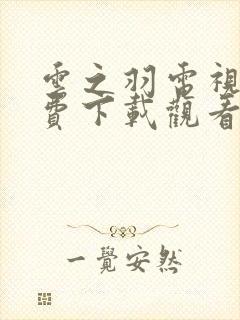 雲之羽電視
費下載觀看
一覺安然